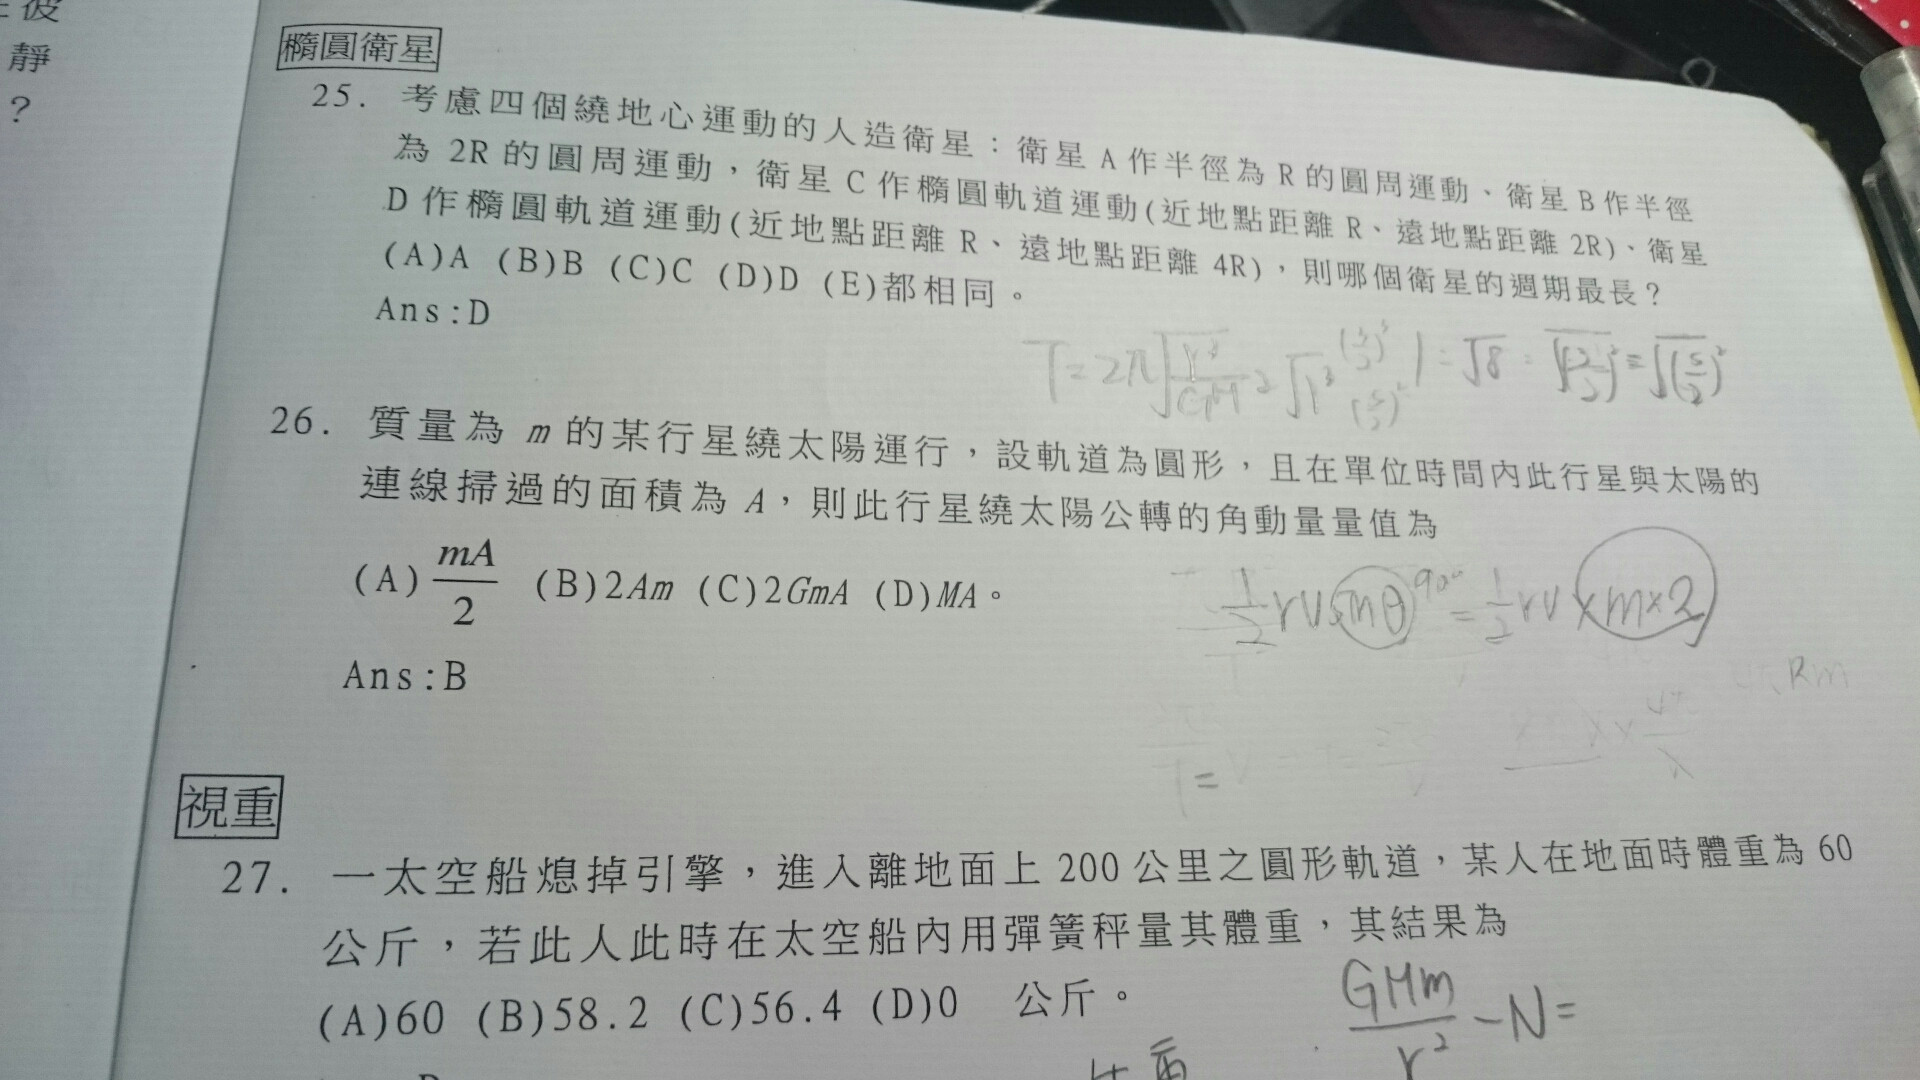 靜
?
橢圓衛星
25. 考慮四個繞地心運動的人造衛星：衛星 A 作半徑為 R 的圓周運動、衛星 B 作半徑
為 2R 的圓周運動，衛星 C 作橢圓軌道運動(近地點距離 R、遠地點距離 2R)、衛星
D 作橢圓軌道運動(近地點距離 R、遠地點距離 4R)，則哪個衛星的週期最長？
(A)A (B)B (C)C (D)D (E)都相同。
Ans:D
26. 質量為 m 的某行星繞太陽運行，設軌道為圓形，且在單位時間內此行星與太陽的
連線掃過的面積為 A，則此行星繞太陽公轉的角動量量值為
(A) mA/2 (B)2Am (C)2GmA (D)MA。
½rvsinθ 90° = ½rv×m×2
Ans:B
Rm
T=
視重
27. 一太空船熄掉引擎，進入離地面上 200 公里之圓形軌道，某人在地面時體重為 60
公斤，若此人此時在太空船內用彈簧秤量其體重，其結果為
(A)60 (B)58.2 (C)56.4 (D)0 公斤。
GMm/r² -N=